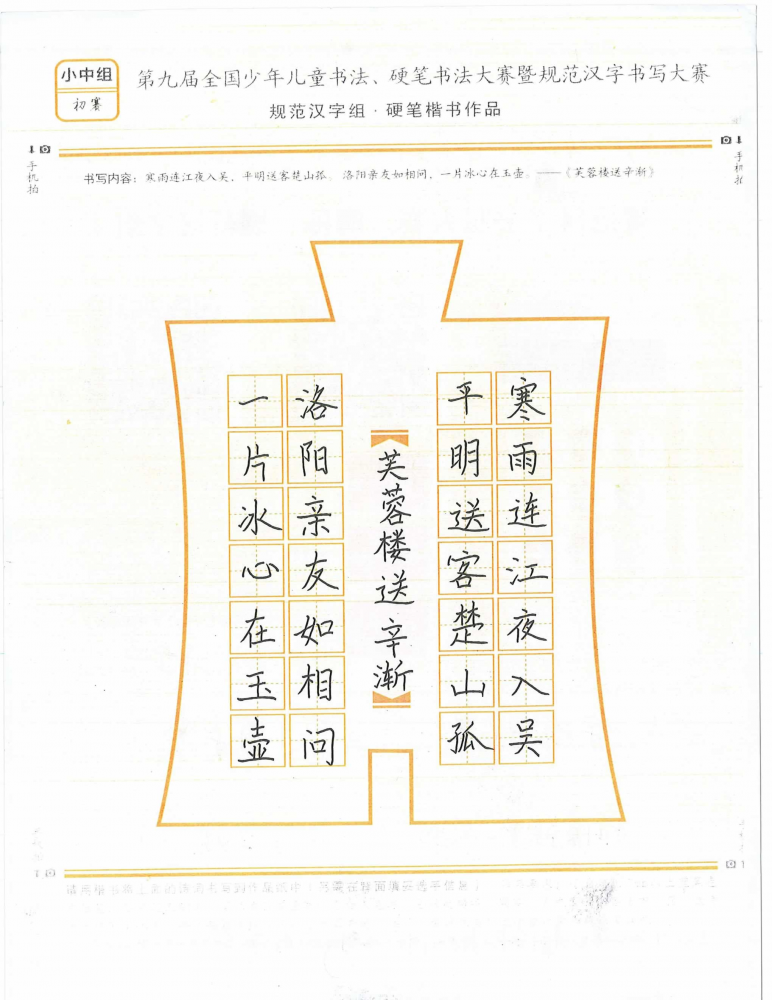 小中组
初赛
第九届全国少年儿童书法、硬笔书法大赛暨规范汉字书写大赛
规范汉字组·硬笔楷书作品
手机拍
手机拍
书写内容：寒雨连江夜入吴，平明送客楚山孤。洛阳亲友如相问，一片冰心在玉壶。——《芙蓉楼送辛渐》
寒雨连江夜入吴
平明送客楚山孤
芙蓉楼送辛渐
洛阳亲友如相问
一片冰心在玉壶